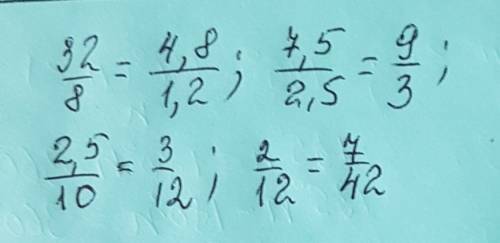 32/8 = 4,8/1,2; 7,5/2,5 = 9/3;
2,5/10 = 3/12; 2/12 = 7/42